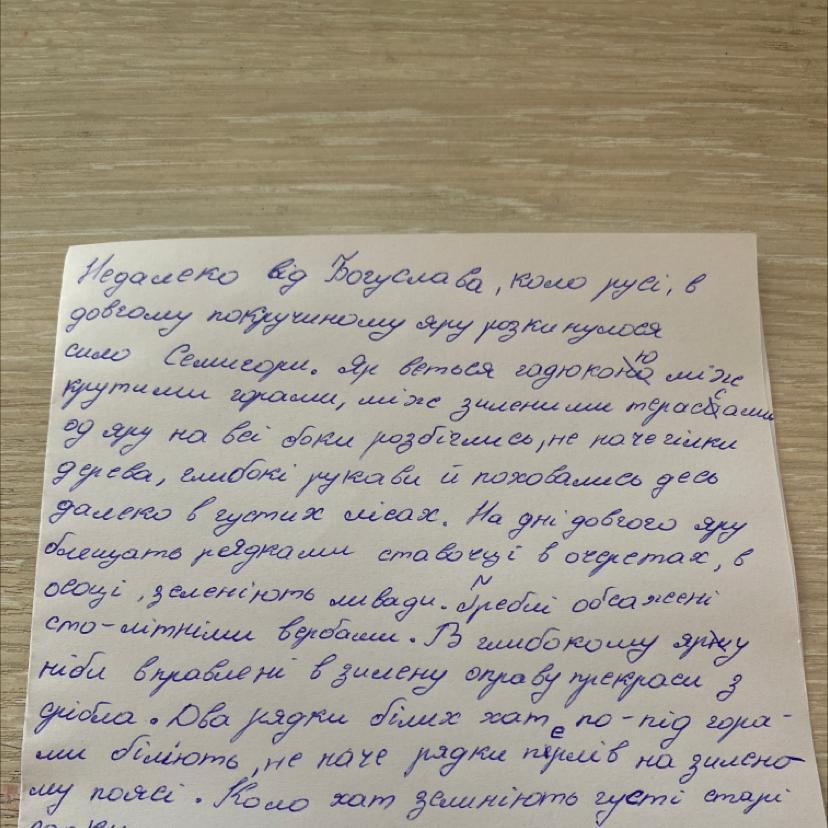 Недалеко від Богуслава, коло русі, в
довгому покручиному яру розкинулося
сило Семигори. Яр веться гадюкою між
крутими горами, між зиленими терасами
од яру на всі боки розбіглись, не наче гілки
дерева, глибокі рукави й поховались десь
далеко в густих лісах. На дні довгого яру
блещать рядками ставочці в очеретах, в
осоці, зеленіють ливади. Греблі обсажені
сто-літніми вербами. В глибокому яру
ніби вправлені в зилену оправу прекраси з
срібла. Два рядки білих хат по-під гора-
ми біліють, не наче рядки перлів на зилено-
му поясі. Коло хат зелиніють густі старі